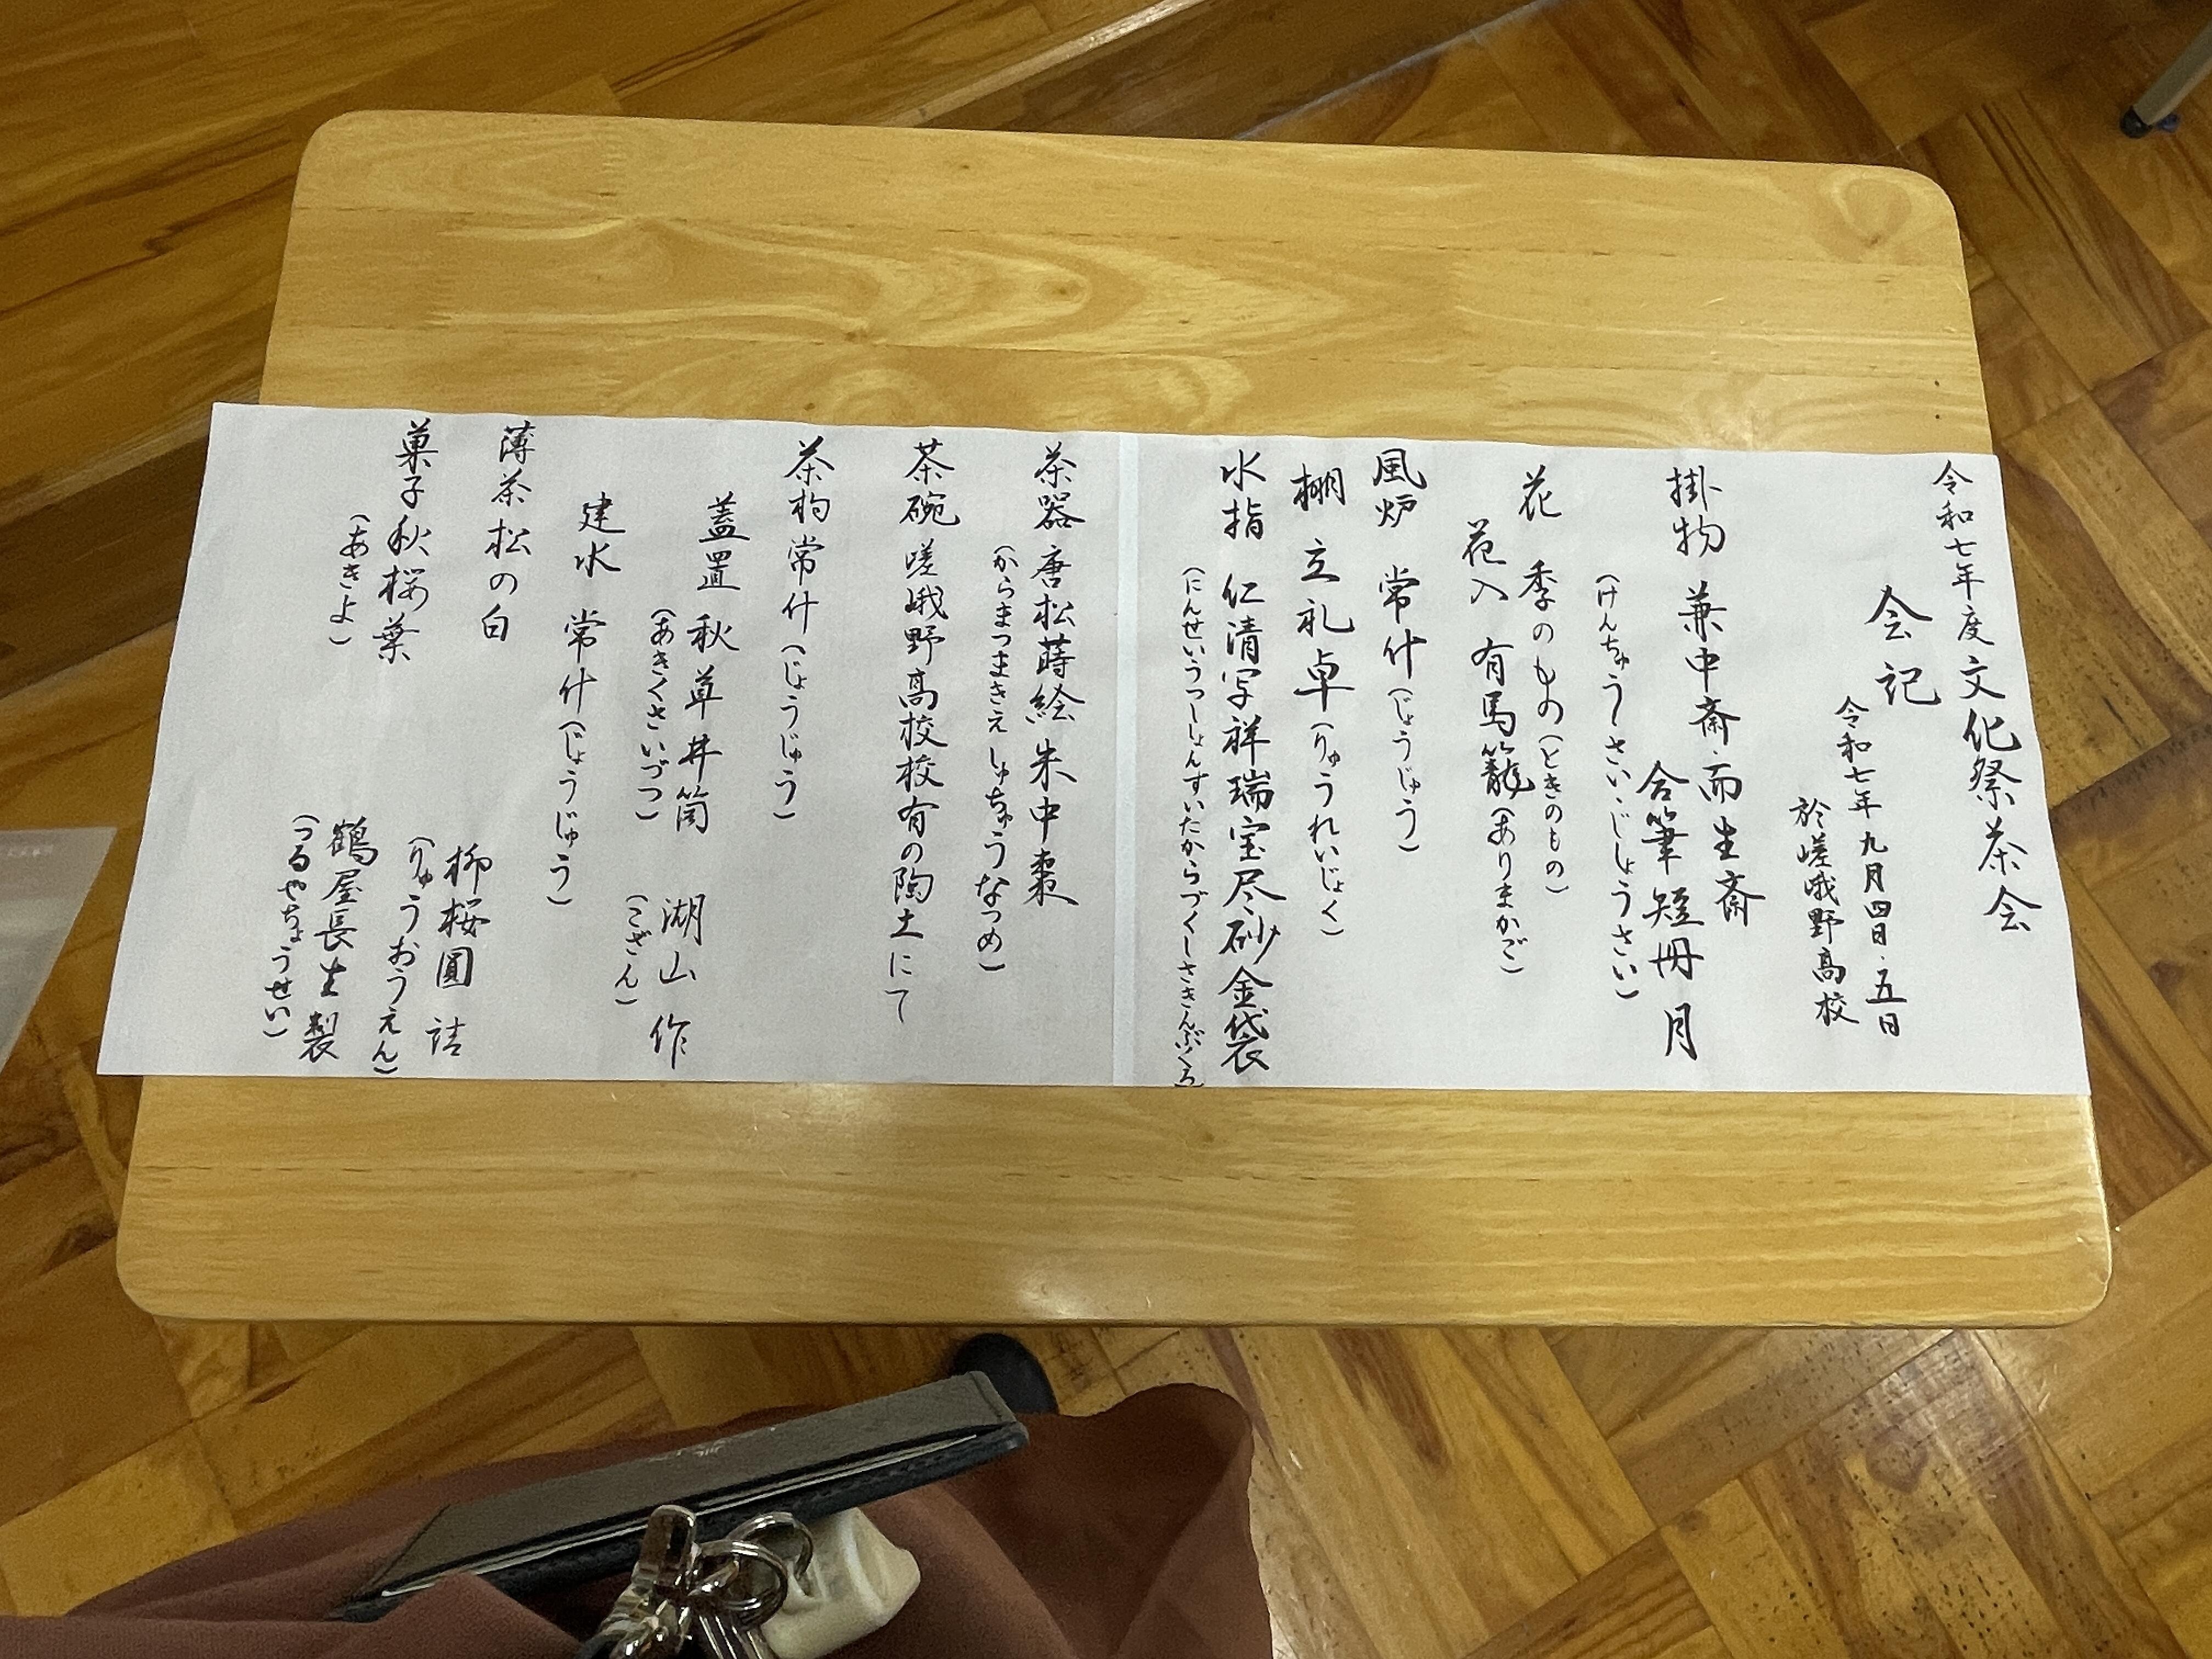 令和七年度文化祭茶会
会記
令和七年九月四日・五日
於嵯峨野高校
掛物 兼中斎・而生斎
合筆短冊 月
（けんちゅうさい・じしょうさい）
花 季のもの（ときのもの）
花入 有馬籠（ありまかご）
風炉 常什（じょうじゅう）
棚 立礼卓（りゅうれいじょく）
水指 仁清写祥瑞宝尽砂金袋
（にんせいうつししょんずいたからづくしさきんぶくろ）
茶器 唐松蒔絵朱中棗
（からまつまきえしゅちゅうなつめ）
茶碗 嵯峨野高校校有の陶土にて
茶杓 常什（じょうじゅう）
蓋置 秋草井筒 湖山 作
（あきくさいづつ） （こざん）
建水 常什（じょうじゅう）
薄茶 松の白
柳桜圓 詰
（りゅうおうえん）
菓子 秋桜葉
（あきよ）
鶴屋長生 製
（つるやちょうせい）